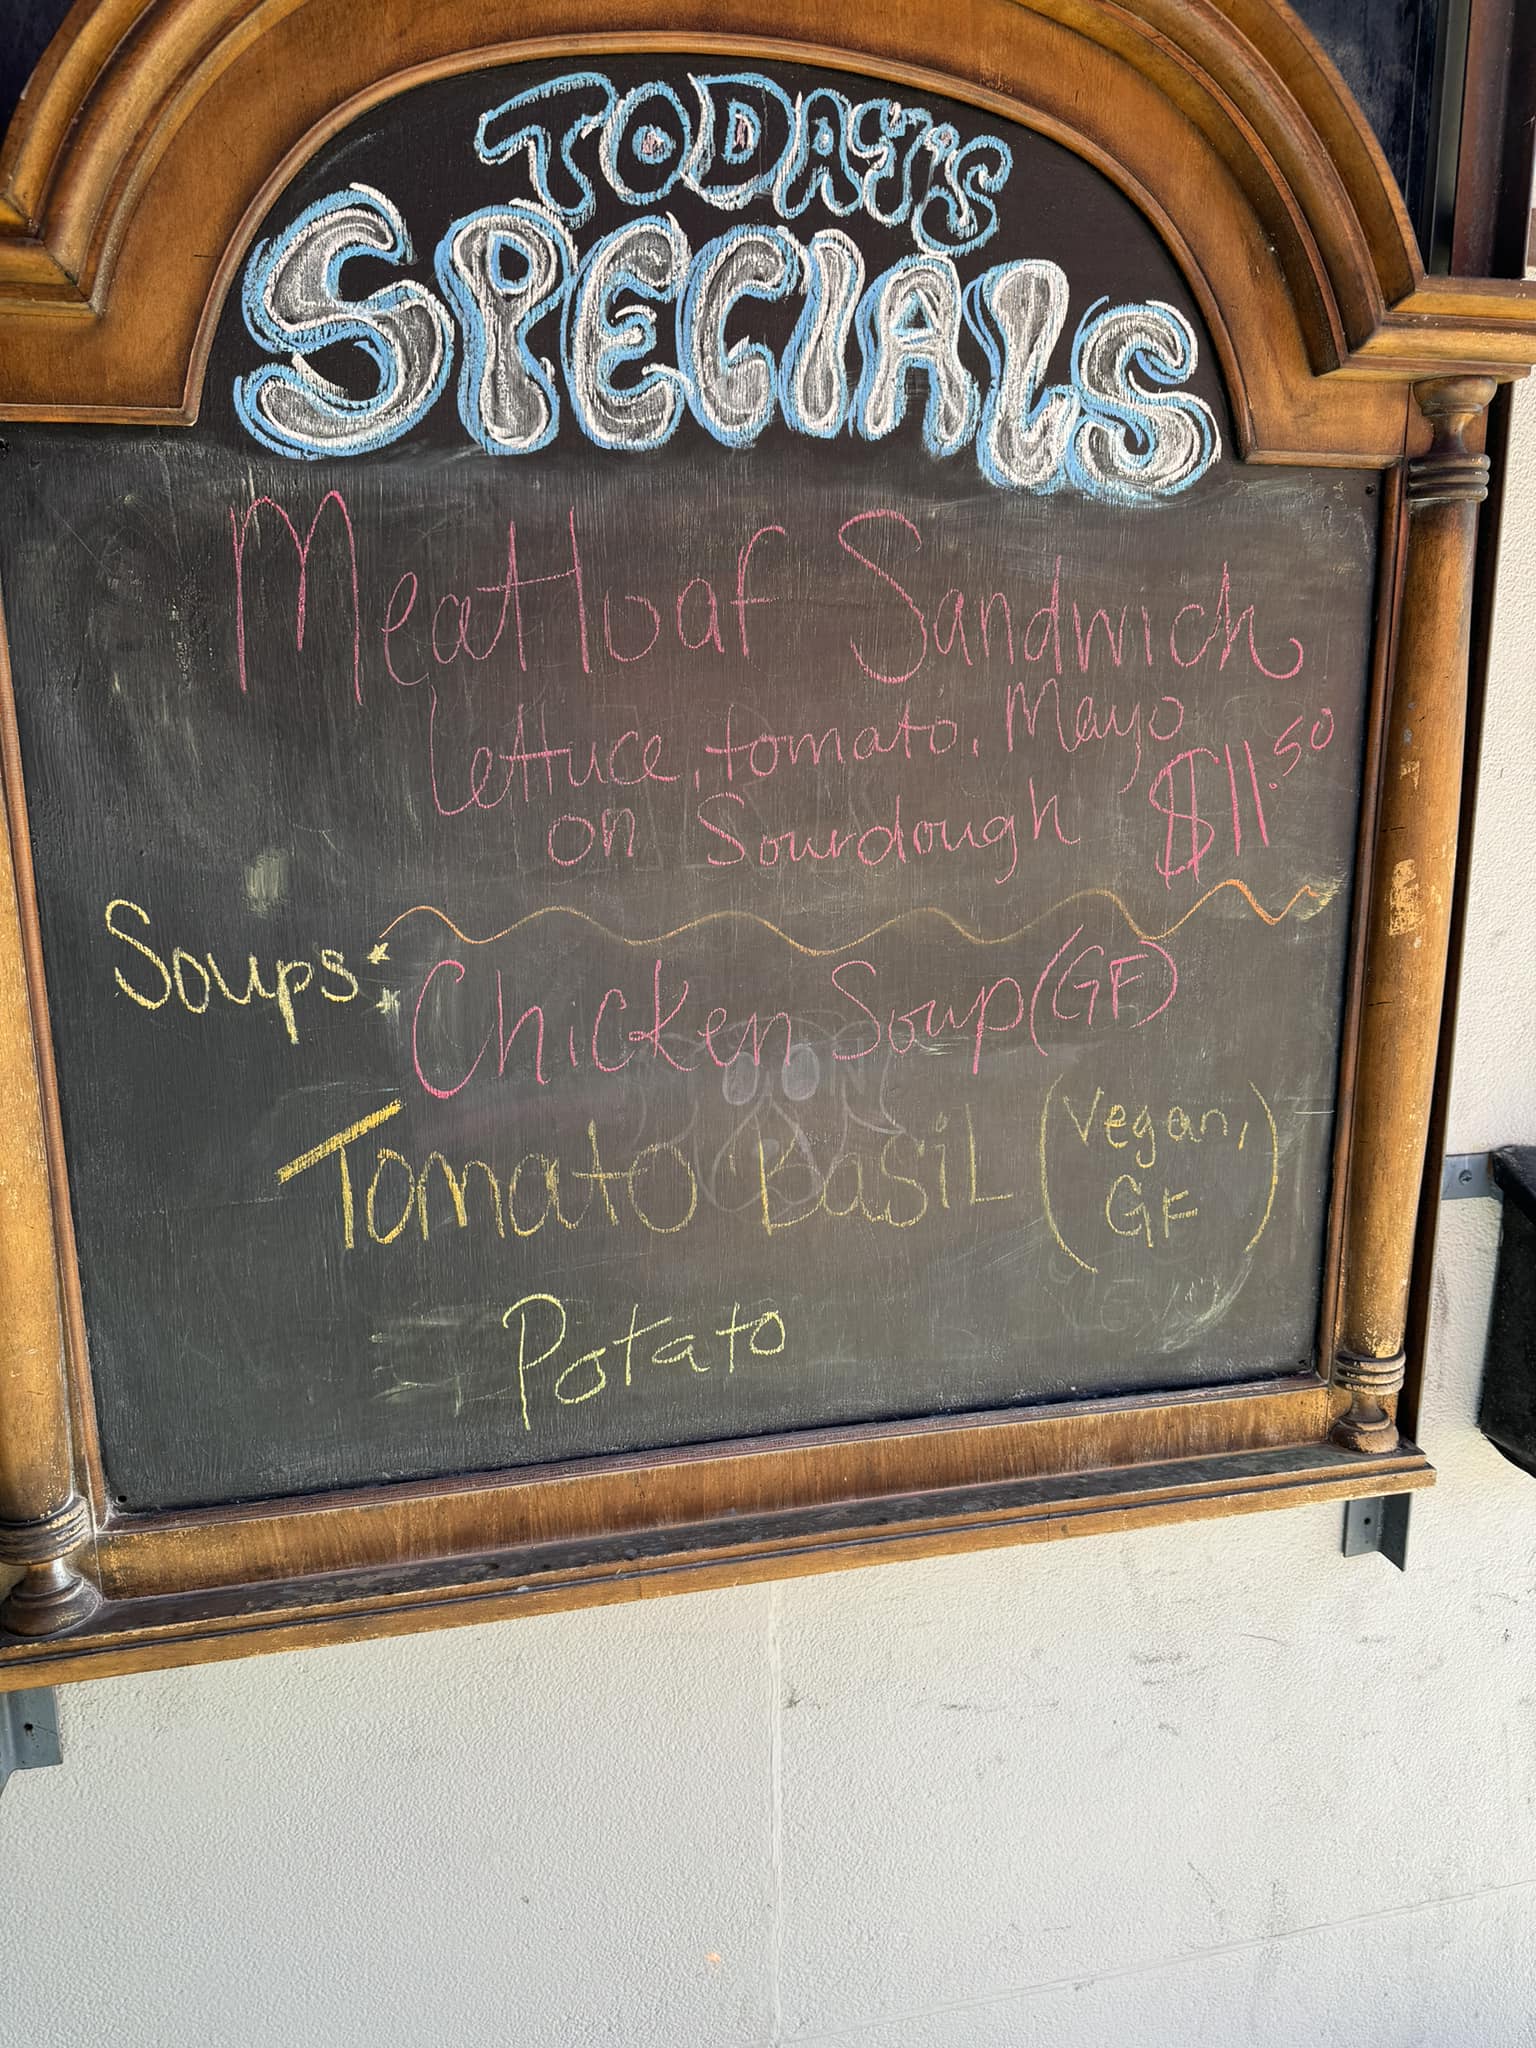 TODAY'S
SPECIALS
Meatloaf Sandwich
Lettuce, tomato, Mayo
on Sourdough $11.50
Soups: Chicken Soup (GF)
Tomato Basil (Vegan,
GF)
Potato